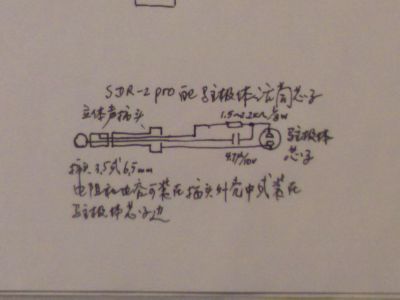 SDR-2 pro 配驻极体话筒芯子
立体声插头
1.5~2.2kΩ/⅛W
驻极体
芯子
4.7μ/10V
插头3.5或6.5mm
电阻和电容可装在插头外壳中或装在
驻极体芯子边